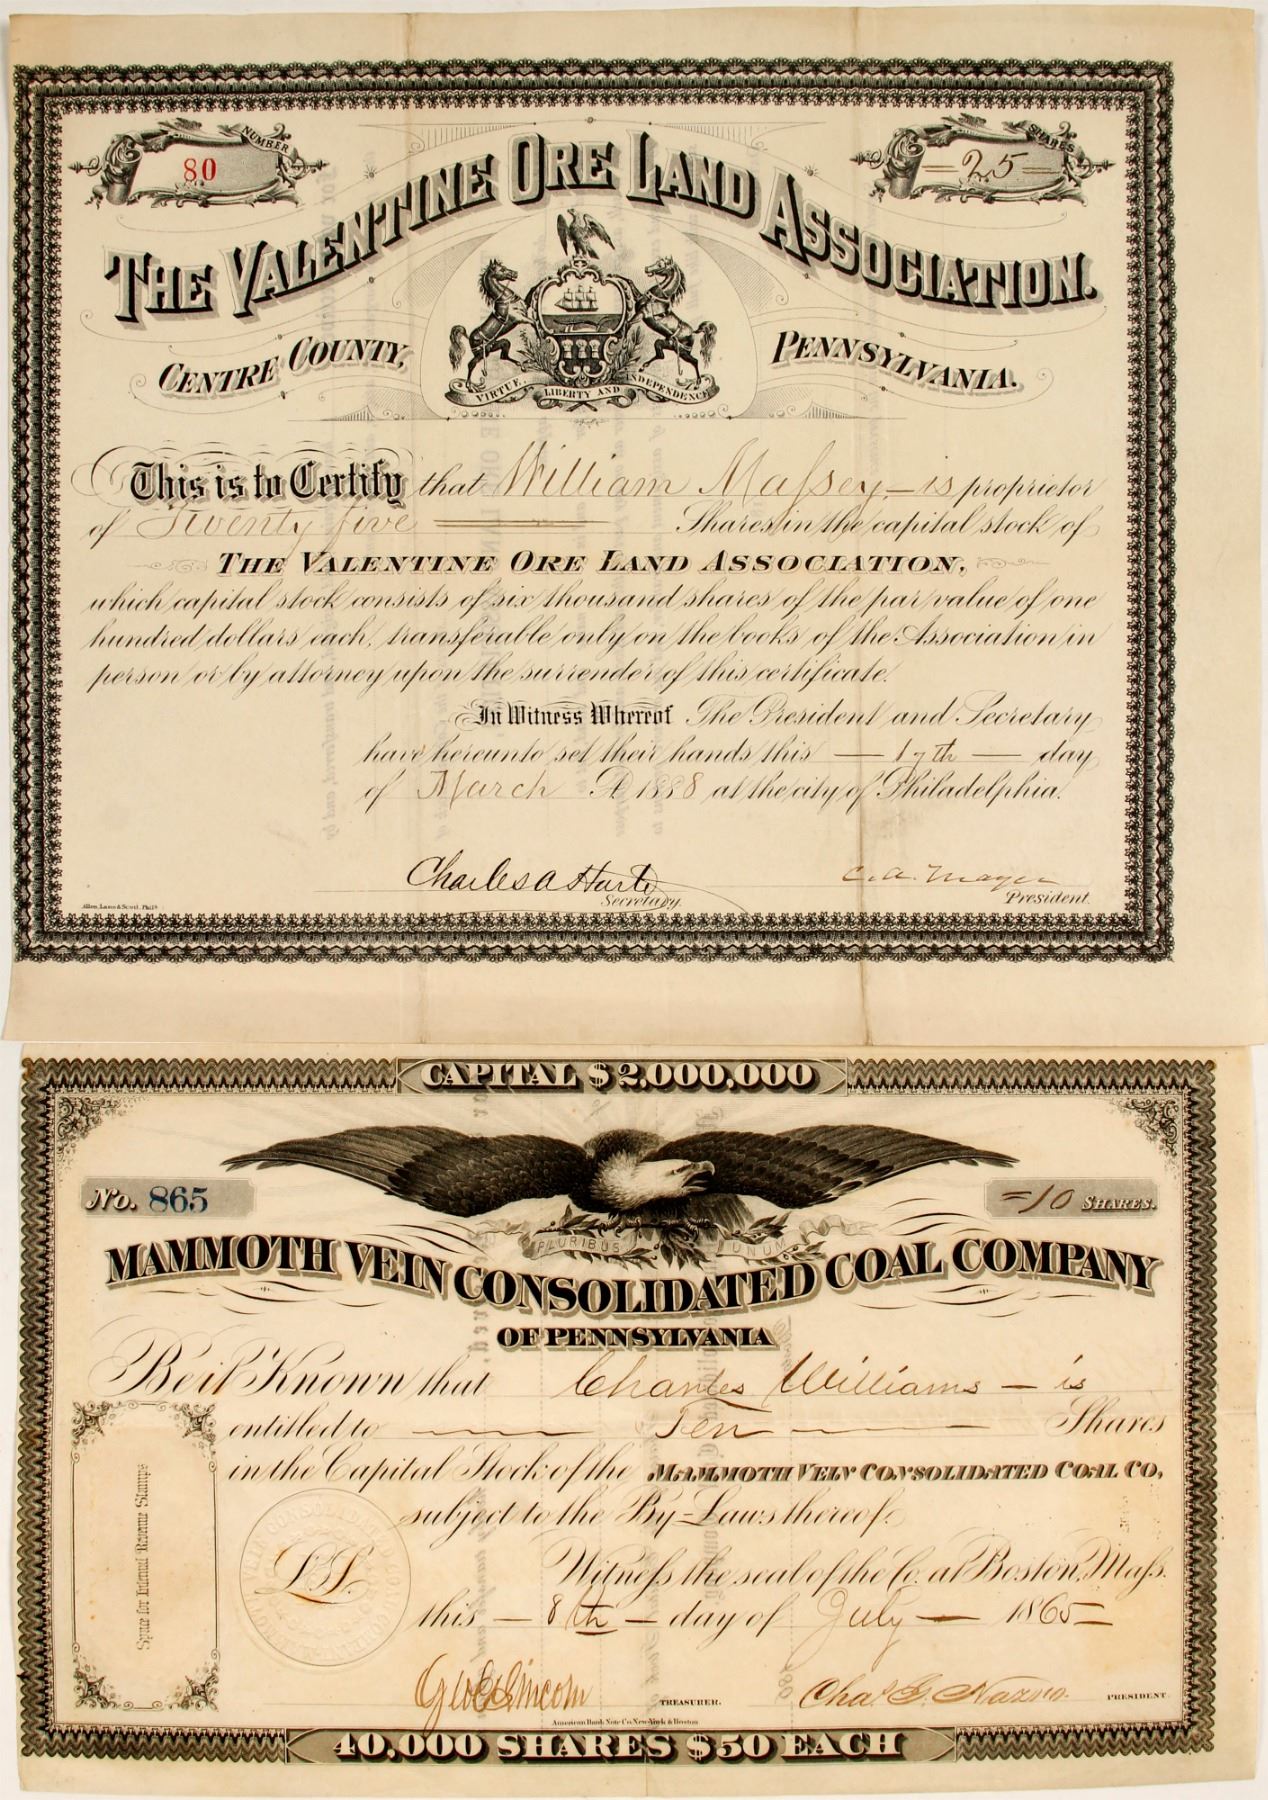 NUMBER
80
SHARES
25
THE VALENTINE ORE LAND ASSOCIATION.
CENTRE COUNTY, PENNSYLVANIA.
VIRTUE, LIBERTY AND INDEPENDENCE
This is to Certify that William Massey is proprietor
of Twenty five Shares in the capital stock of
THE VALENTINE ORE LAND ASSOCIATION,
which capital stock consists of six thousand shares of the par value of one
hundred dollars each, transferable only on the books of the Association in
person or by attorney upon the surrender of this certificate.
In Witness Whereof The President and Secretary
have hereunto set their hands this — 17th — day
of March AD 1888 at the city of Philadelphia.
Charles A
C. A. Mayer
Secretary.
President.
Allen, Lane & Scott, Phil'a
CAPITAL $2,000,000
No. 865
=10 SHARES.
PLURIBUS UNUM
MAMMOTH VEIN CONSOLIDATED COAL COMPANY
OF PENNSYLVANIA
Be it Known that Charles Williams — is
entitled to — Ten — Shares
in the Capital Stock of the MAMMOTH VEIN CONSOLIDATED COAL CO,
subject to the By-Laws thereof.
Space for Internal Revenue Stamps
L.S.
Witness the seal of the Co. at Boston, Mass.
this — 8th — day of July — 1865
Geo Lincoln TREASURER.
Chas. G. PRESIDENT
American Bank Note Co. New-York & Boston
40,000 SHARES $50 EACH